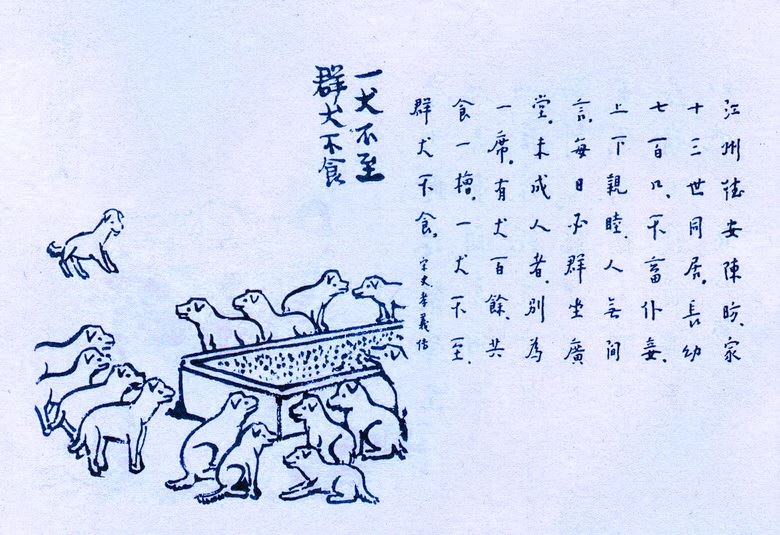 江州德安陳昉、家
十三世同居。長幼
七百口、不畜仆妾、
上下親睦、人無間
言。每日必群坐廣
堂。未成人者、別為
一席。有犬百餘、共
食一槽。一犬不至、
群犬不食。宋史孝義傳
一犬不至
群犬不食